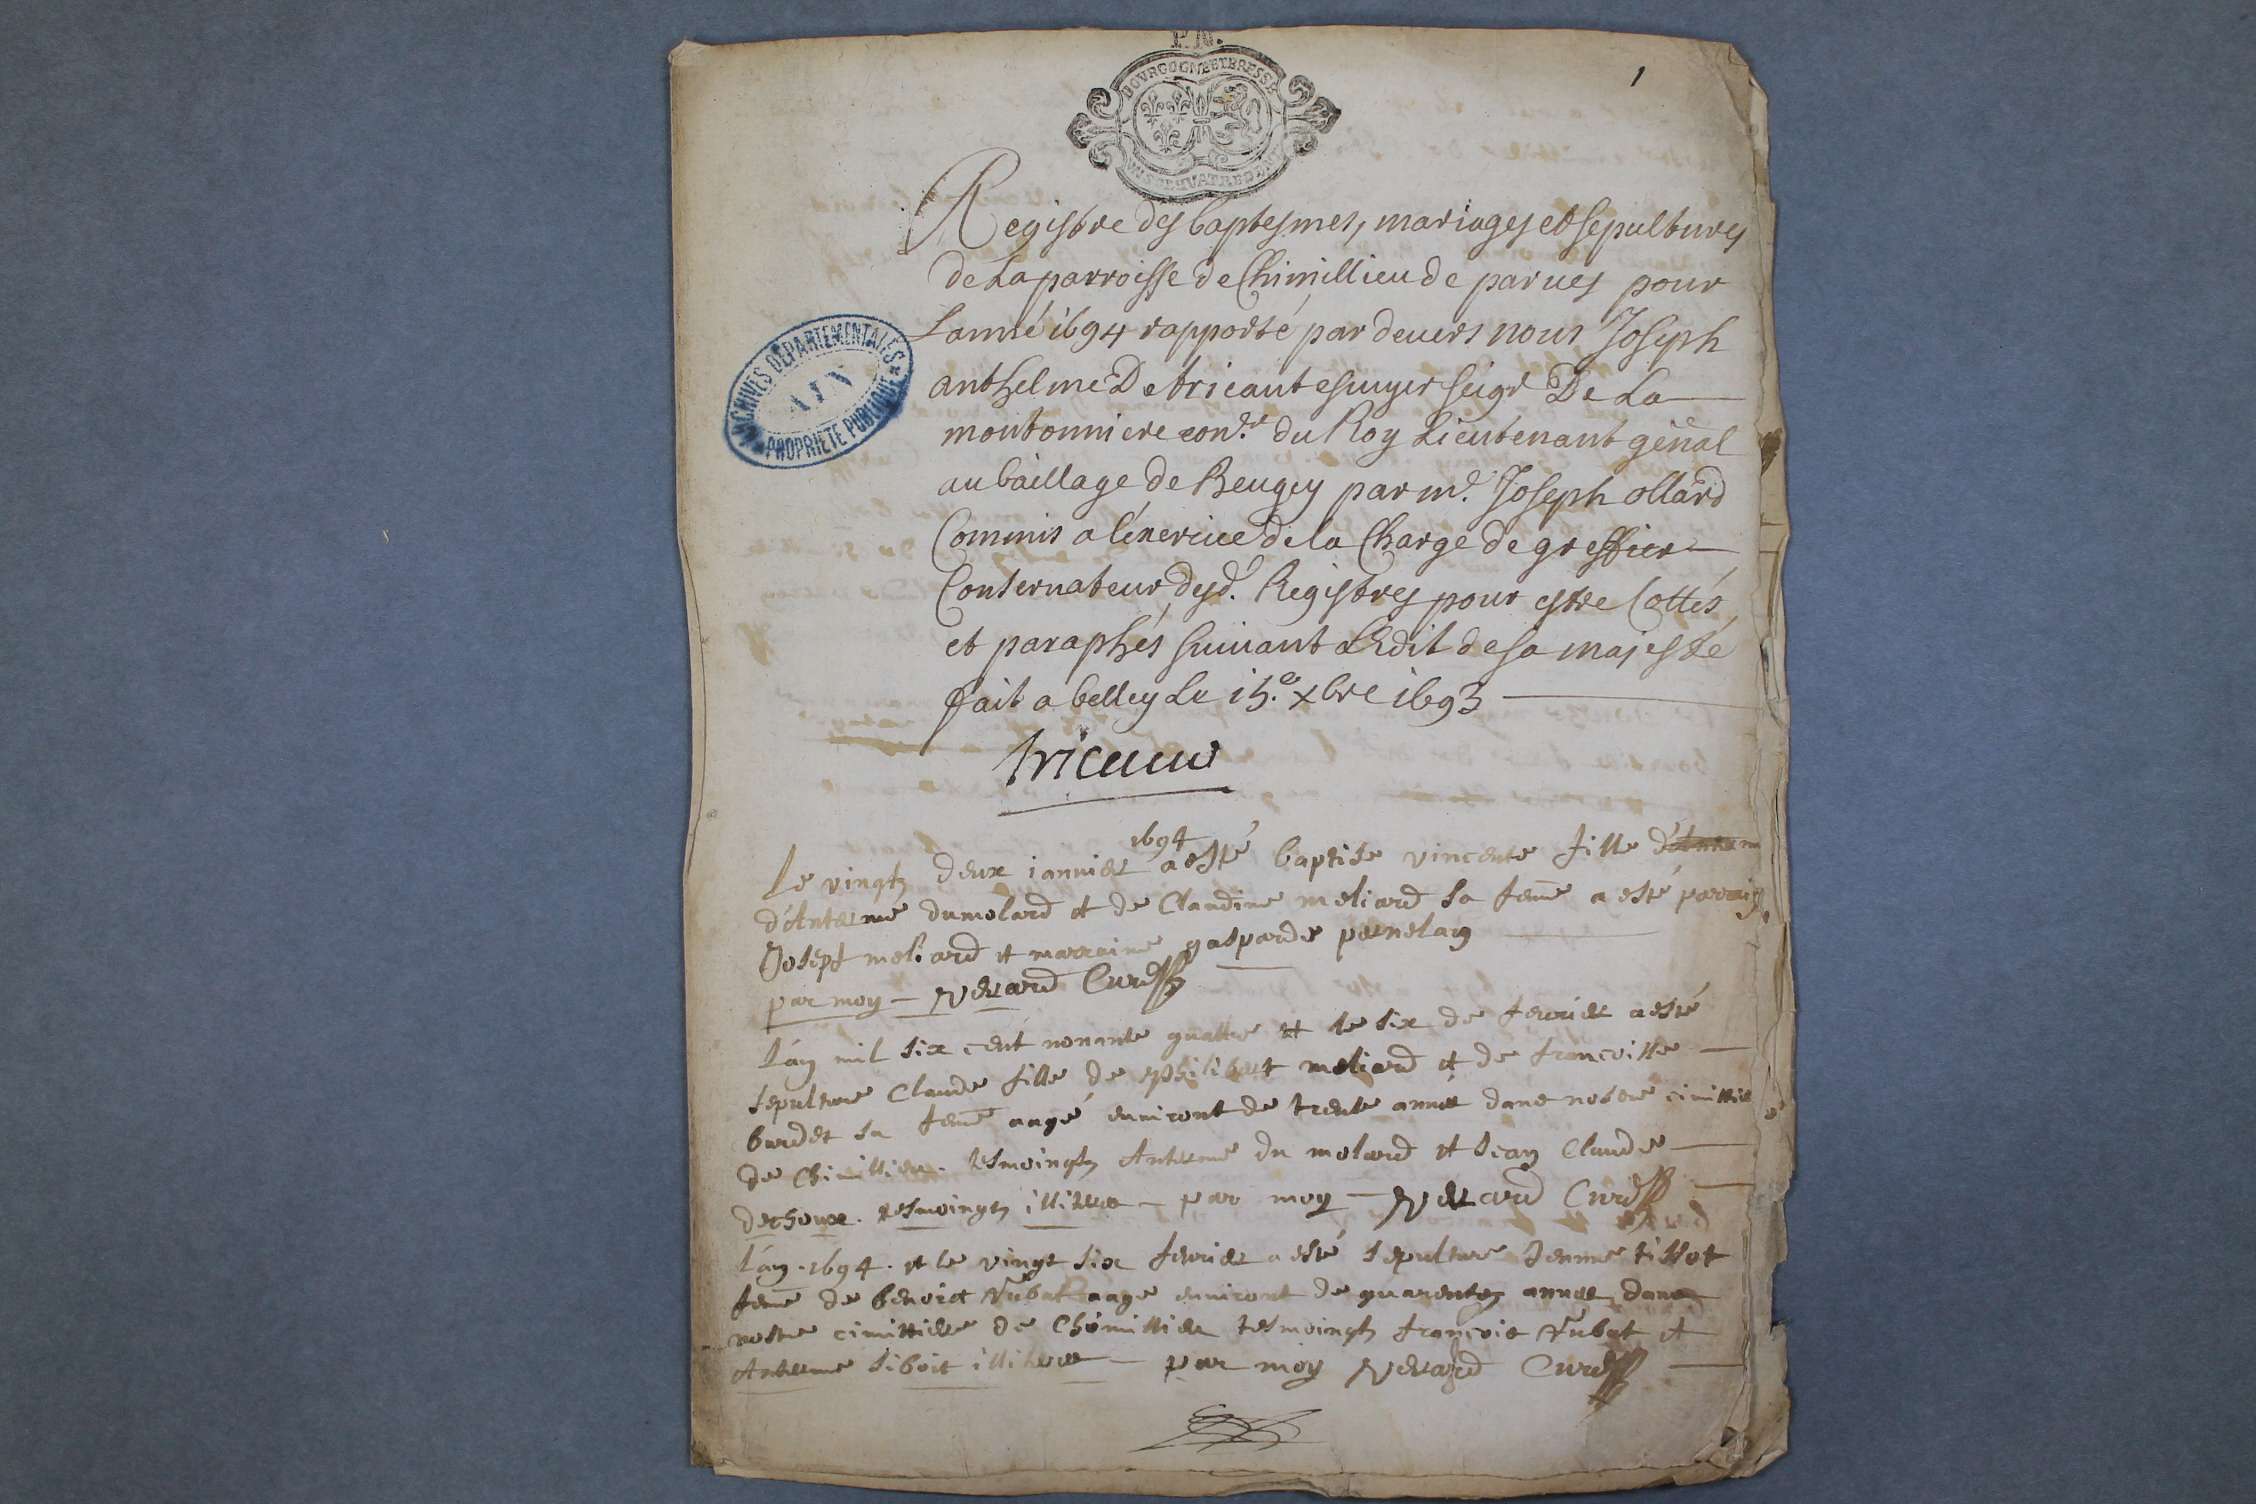 BOURGOGNE ET BRESSE
1
Registre des baptesmes, mariages et sepultures
de La parroisse de Chimillieu de parues pour
L'anné 1694 rapporté par deuers nous Joseph
anthelme De tricaut escuyer seigr De La
montonniere con.er du Roy Lieutenant genal
au baillage de Beugey par me. Joseph ollard
Commis a l'exercice de la Charge de greffier
Conseruateur desd. Registres pour estre Cottés
et paraphés suiuant L'Edit de sa majesté
fait a belley Le 15.e xbre 1693
tricaud
ARCHIVES DÉPARTEMENTALES
AIN
PROPRIÉTÉ PUBLIQUE
1694
Le vingt deux ianuier a esté baptise vincente fille
d'Anterme dumolard et de Claudine meliard sa feme a esté parrain
Josept meliard et marraine gasparde
par moy Curé
L'an mil six cent nonante quattre et le six de feurier a esté
sepulture Claude fille de philibert meliard et de francoisse
burdet sa feme aagé enuiront de trente année dans nostre cimittiere
de Chimillieu tesmoingtz Anterme du molard et Jean Claude
tesmoingtz illiteres par moy Curé
L'an 1694 et le vingt six feurier a esté sepulture Jeanne tissot
feme de benoict aage enuiront de quarente année dans
nostre cimittiere de Chimillieu tesmoingtz francois et
Anterme illiteres par moy Curé